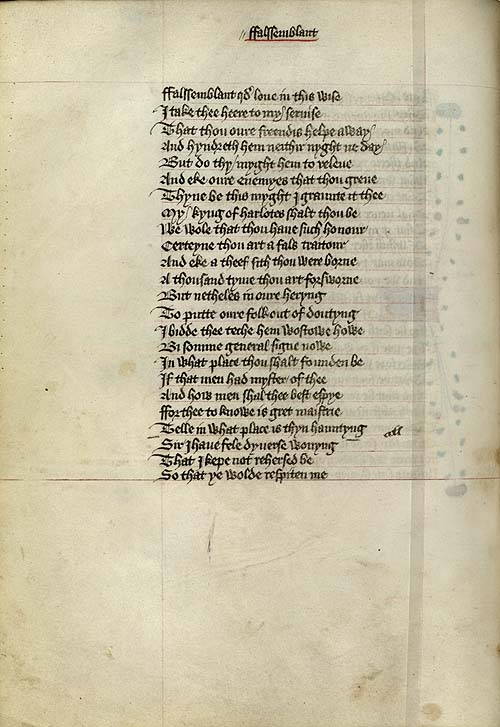 // ffalssemblant
ffalssemblant qd loue in this wise
I take thee heere to my seruise
That thou oure freendis helpe away
And hyndreth hem neithir nyght ne day
But do thy myght hem to releue
And eke oure enemyes that thou greue
Thyne be this myght I graunte it thee
My kyng of harlotes shalt thou be
We wole that thou haue such honour
Certeyne thou art a fals traitour
And eke a theef sith thou were borne
A thousand tyme thou art forsworne
But netheles in oure heryng
To putte oure folk out of doutyng
I bidde thee teche hem wostowe howe
Bi somme general signe nowe
In what place thou shalt founden be
If that men had myster of thee
And how men shal thee best espye
ffor thee to knowe is gret maistrie
Telle in what place is thyn hauntyng
Sir I haue fele dyuerse wonyng
That I kepe not rehersed be
So that ye wolde respiten me